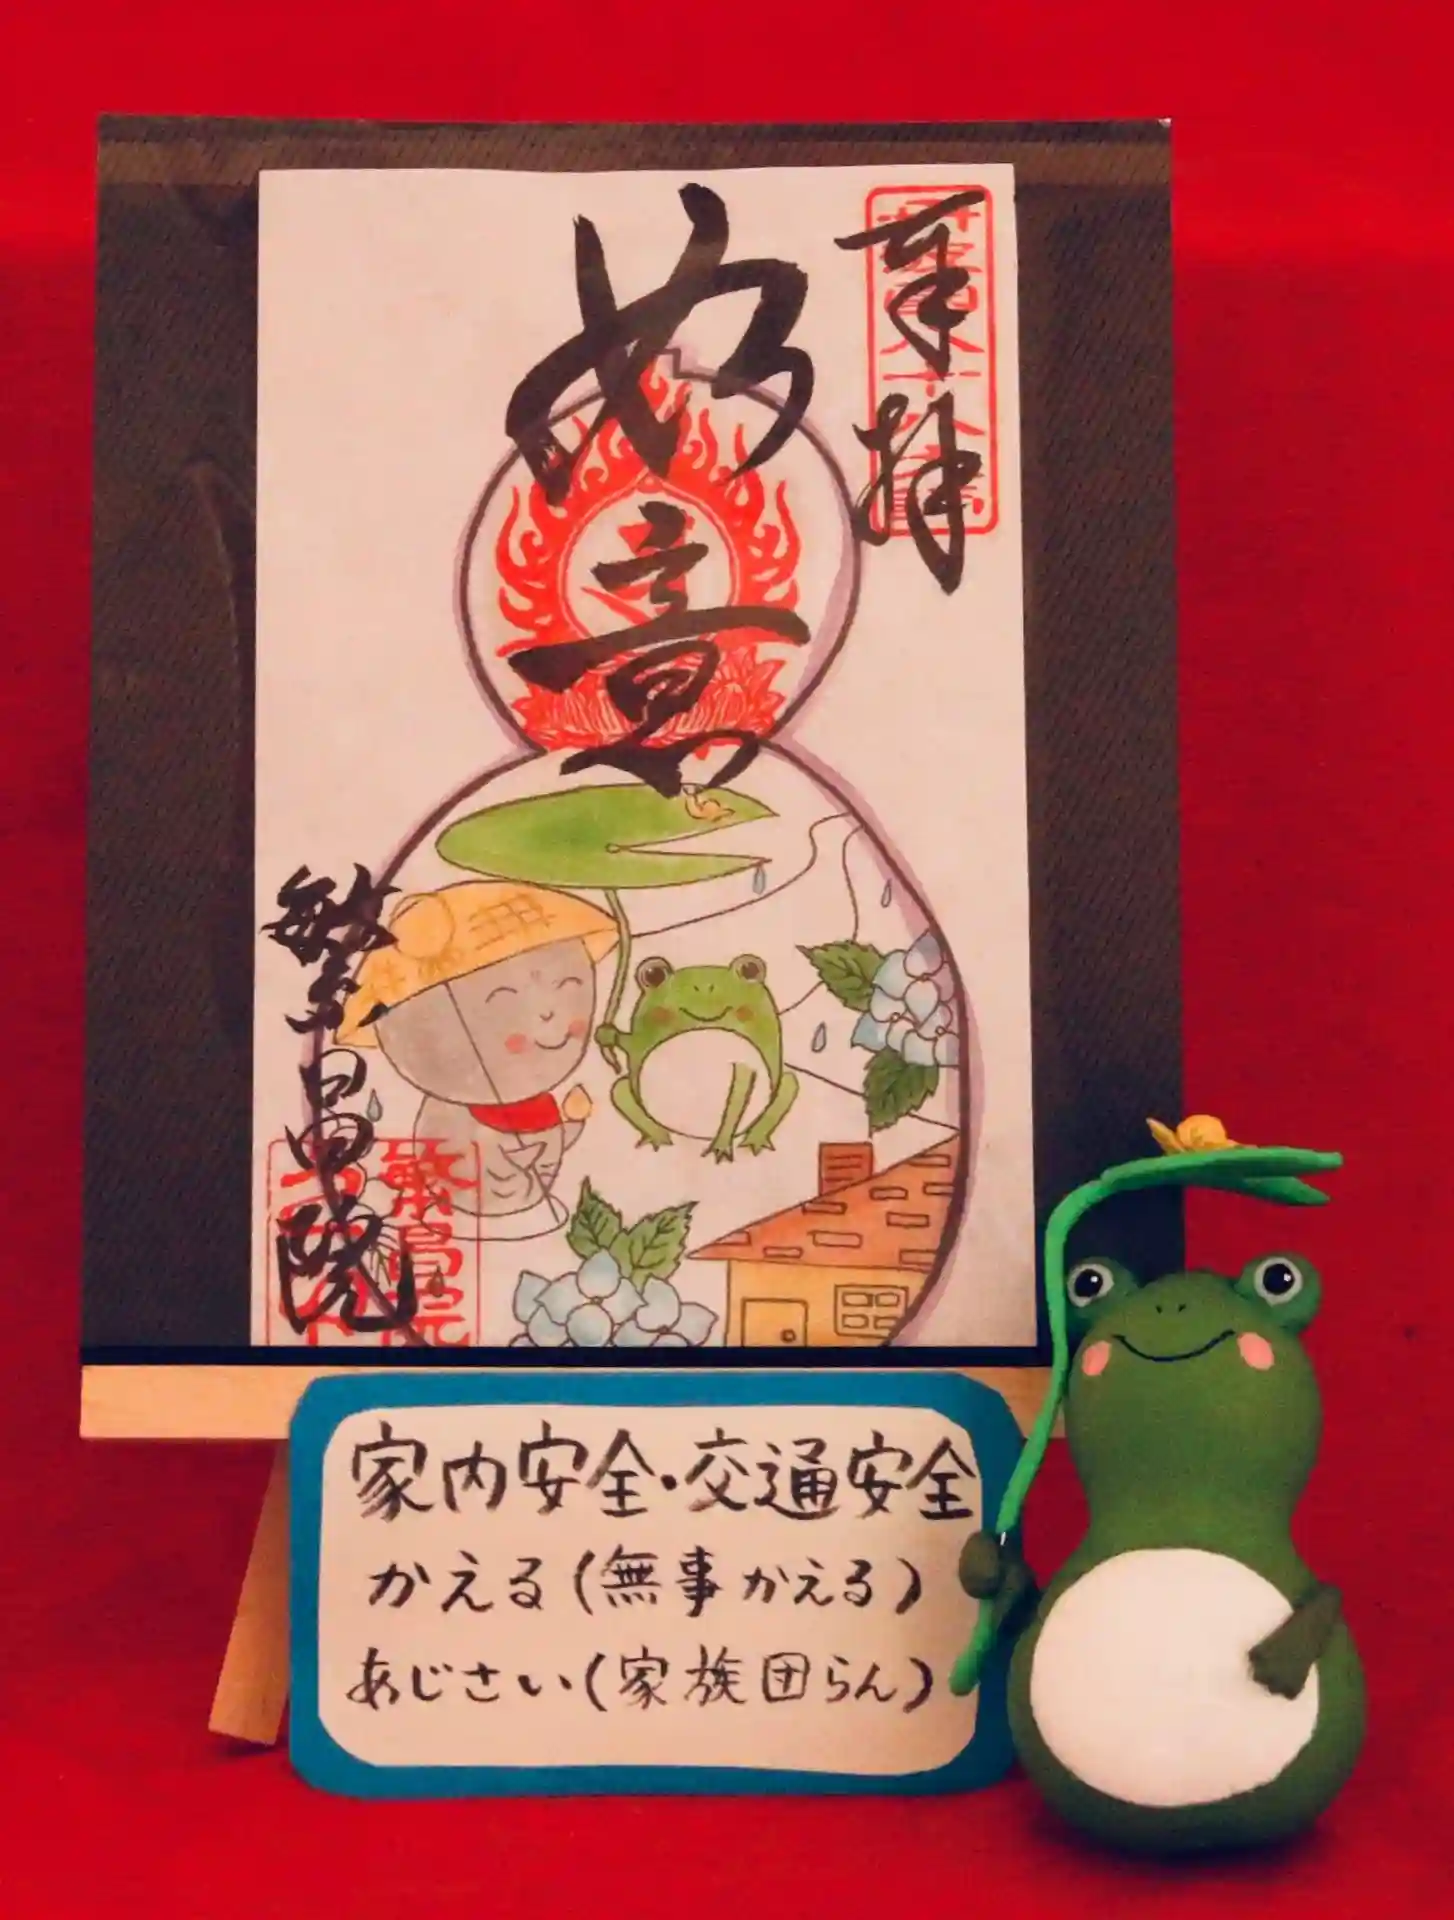 奉拝
如意
繁昌院
家内安全・交通安全
かえる(無事かえる)
あじさい(家族団らん)